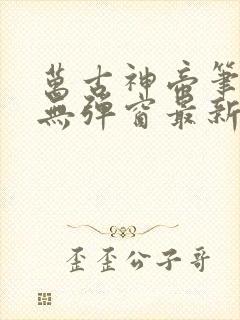 萬古神帝筆
無彈窗最新
歪歪公子哥